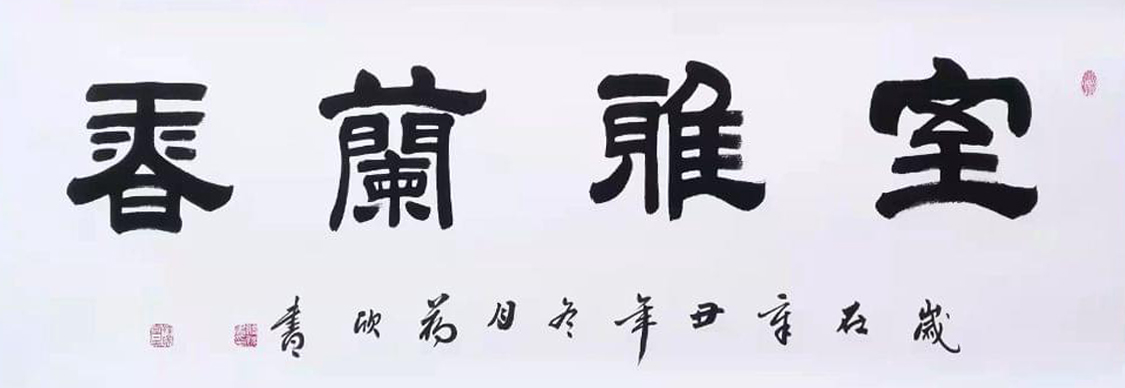 室雅蘭香
歲在辛丑年冬月蒋欣書